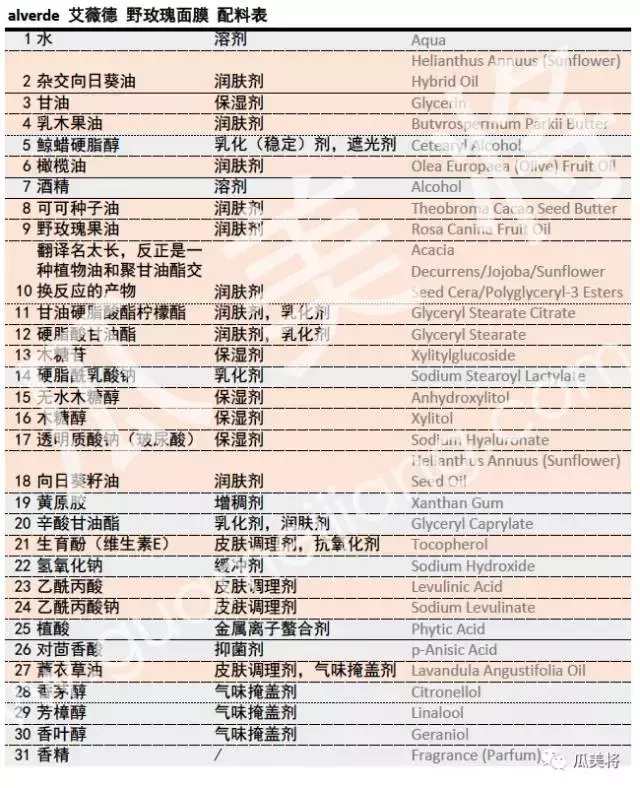 alverde 艾薇德 野玫瑰面膜 配料表
1 水 溶剂 Aqua
Helianthus Annuus (Sunflower)
2 杂交向日葵油 润肤剂 Hybrid Oil
3 甘油 保湿剂 Glycerin
4 乳木果油 润肤剂 Butvrospermum Parkii Butter
5 鲸蜡硬脂醇 乳化（稳定）剂，遮光剂 Cetearyl Alcohol
6 橄榄油 润肤剂 Olea Europaea (Olive) Fruit Oil
7 酒精 溶剂 Alcohol
8 可可种子油 润肤剂 Theobroma Cacao Seed Butter
9 野玫瑰果油 润肤剂 Rosa Canina Fruit Oil
翻译名太长，反正是一 Acacia
种植物油和聚甘油酯交 Decurrens/Jojoba/Sunflower
10 换反应的产物 润肤剂 Seed Cera/Polyglyceryl-3 Esters
11 甘油硬脂酸酯柠檬酯 润肤剂，乳化剂 Glyceryl Stearate Citrate
12 硬脂酸甘油酯 润肤剂，乳化剂 Glyceryl Stearate
13 木糖苷 保湿剂 Xylitylglucoside
14 硬脂酰乳酸钠 乳化剂 Sodium Stearoyl Lactylate
15 无水木糖醇 保湿剂 Anhydroxylitol
16 木糖醇 保湿剂 Xylitol
17 透明质酸钠（玻尿酸） 保湿剂 Sodium Hyaluronate
Helianthus Annuus (Sunflower)
18 向日葵籽油 润肤剂 Seed Oil
19 黄原胶 增稠剂 Xanthan Gum
20 辛酸甘油酯 乳化剂，润肤剂 Glyceryl Caprylate
21 生育酚（维生素E） 皮肤调理剂，抗氧化剂 Tocopherol
22 氢氧化钠 缓冲剂 Sodium Hydroxide
23 乙酰丙酸 皮肤调理剂 Levulinic Acid
24 乙酰丙酸钠 皮肤调理剂 Sodium Levulinate
25 植酸 金属离子螯合剂 Phytic Acid
26 对茴香酸 抑菌剂 p-Anisic Acid
27 薰衣草油 皮肤调理剂，气味掩盖剂 Lavandula Angustifolia Oil
28 香茅醇 气味掩盖剂 Citronellol
29 芳樟醇 气味掩盖剂 Linalool
30 香叶醇 气味掩盖剂 Geraniol
31 香精 / Fragrance (Parfum)
瓜美将